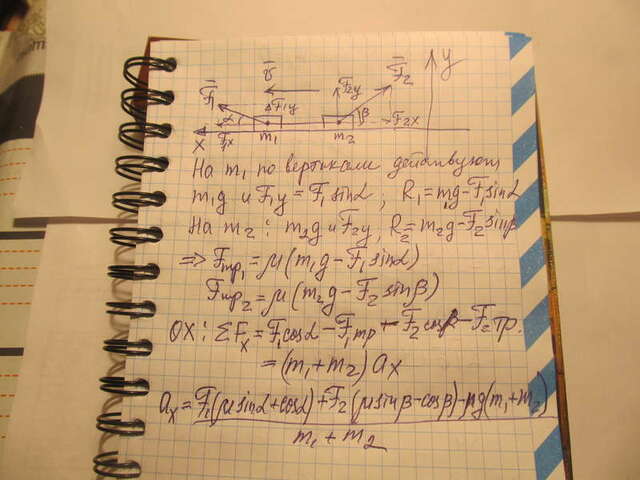 v̄
y
F̄₁
F₁y
F₂y
F̄₂
α
β
F₂x
X
F₁x
m₁
m₂
На m₁ по вертикали действуют
m₁g и F₁y = F₁sinα ; R₁=m₁g-F₁sinα
На m₂ : m₂g и F₂y, R₂=m₂g-F₂sinβ
⇒ Fтр₁=μ(m₁g-F₁sinα)
Fтр₂=μ(m₂g-F₂sinβ)
OX: ΣFx=F₁cosα-F₁тр-F₂cosβ-F₂тр.
=(m₁+m₂)ax
ax=F₁(μsinα+cosα)+F₂(μsinβ-cosβ)-μg(m₁+m₂)
m₁+m₂